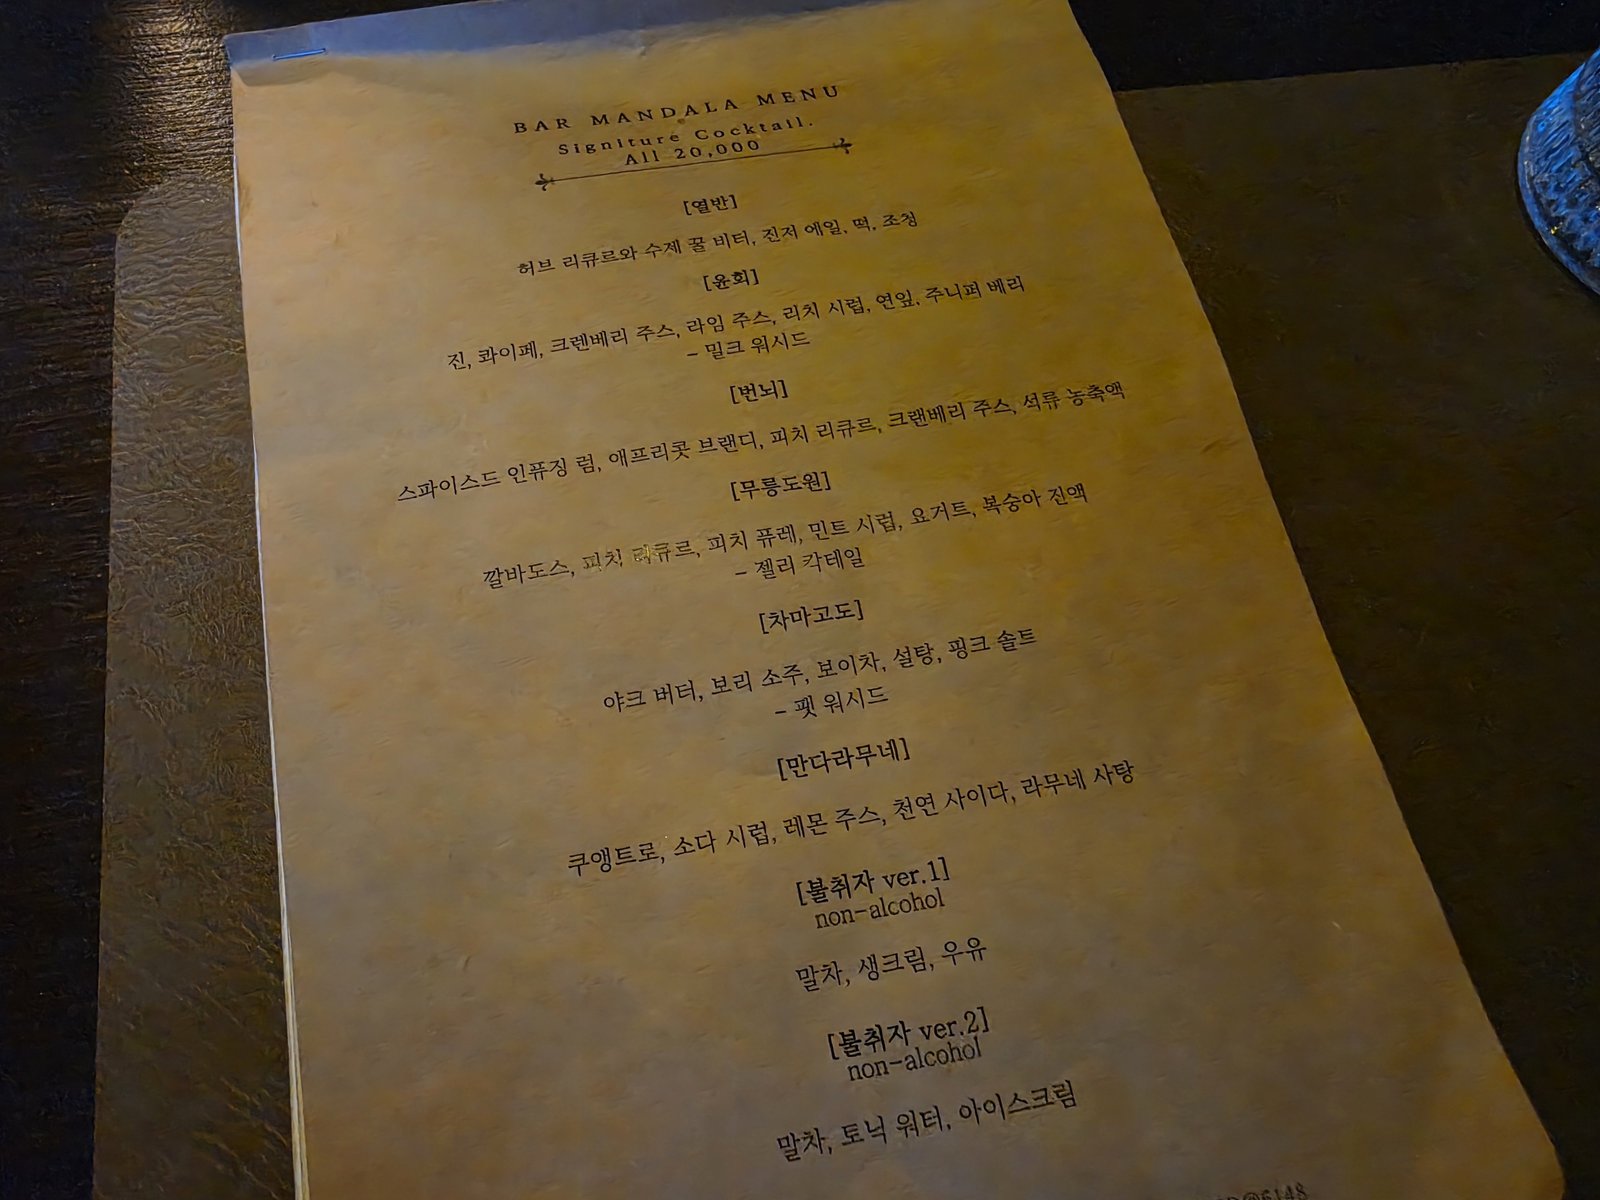 BAR MANDALA MENU
Signiture Cocktail.
All 20,000
[열반]
허브 리큐르와 수제 꿀 비터, 진저 에일, 떡, 조청
[윤회]
진, 콰이페, 크렌베리 주스, 라임 주스, 리치 시럽, 연잎, 주니퍼 베리
- 밀크 워시드
[번뇌]
스파이스드 인퓨징 럼, 애프리콧 브랜디, 피치 리큐르, 크랜베리 주스, 석류 농축액
[무릉도원]
깔바도스, 피치 리큐르, 피치 퓨레, 민트 시럽, 요거트, 복숭아 진액
- 젤리 칵테일
[차마고도]
야크 버터, 보리 소주, 보이차, 설탕, 핑크 솔트
- 팻 워시드
[만다라무네]
쿠앵트로, 소다 시럽, 레몬 주스, 천연 사이다, 라무네 사탕
[불취자 ver.1]
non-alcohol
말차, 생크림, 우유
[불취자 ver.2]
non-alcohol
말차, 토닉 워터, 아이스크림